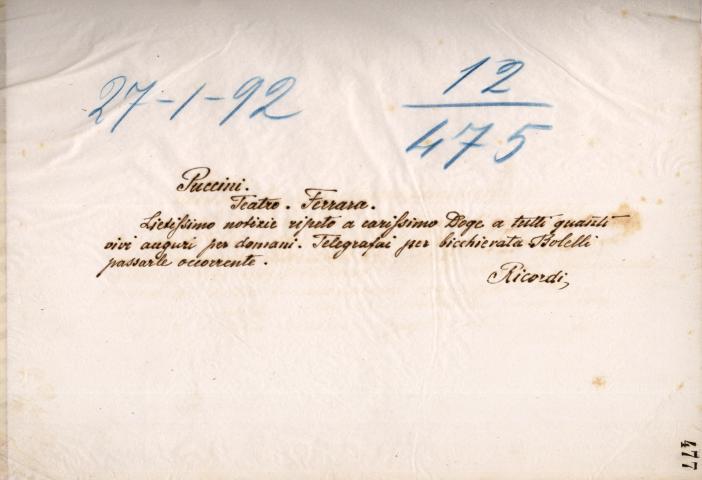 27-1-92
12
475
Puccini.
Teatro. Ferrara.
Lietissimo notizie ripeto a carissimo Doge a tutti quanti
vivi auguri per domani. Telegrafai per bicchierata Bolelli
passarle occorrente.
Ricordi
477